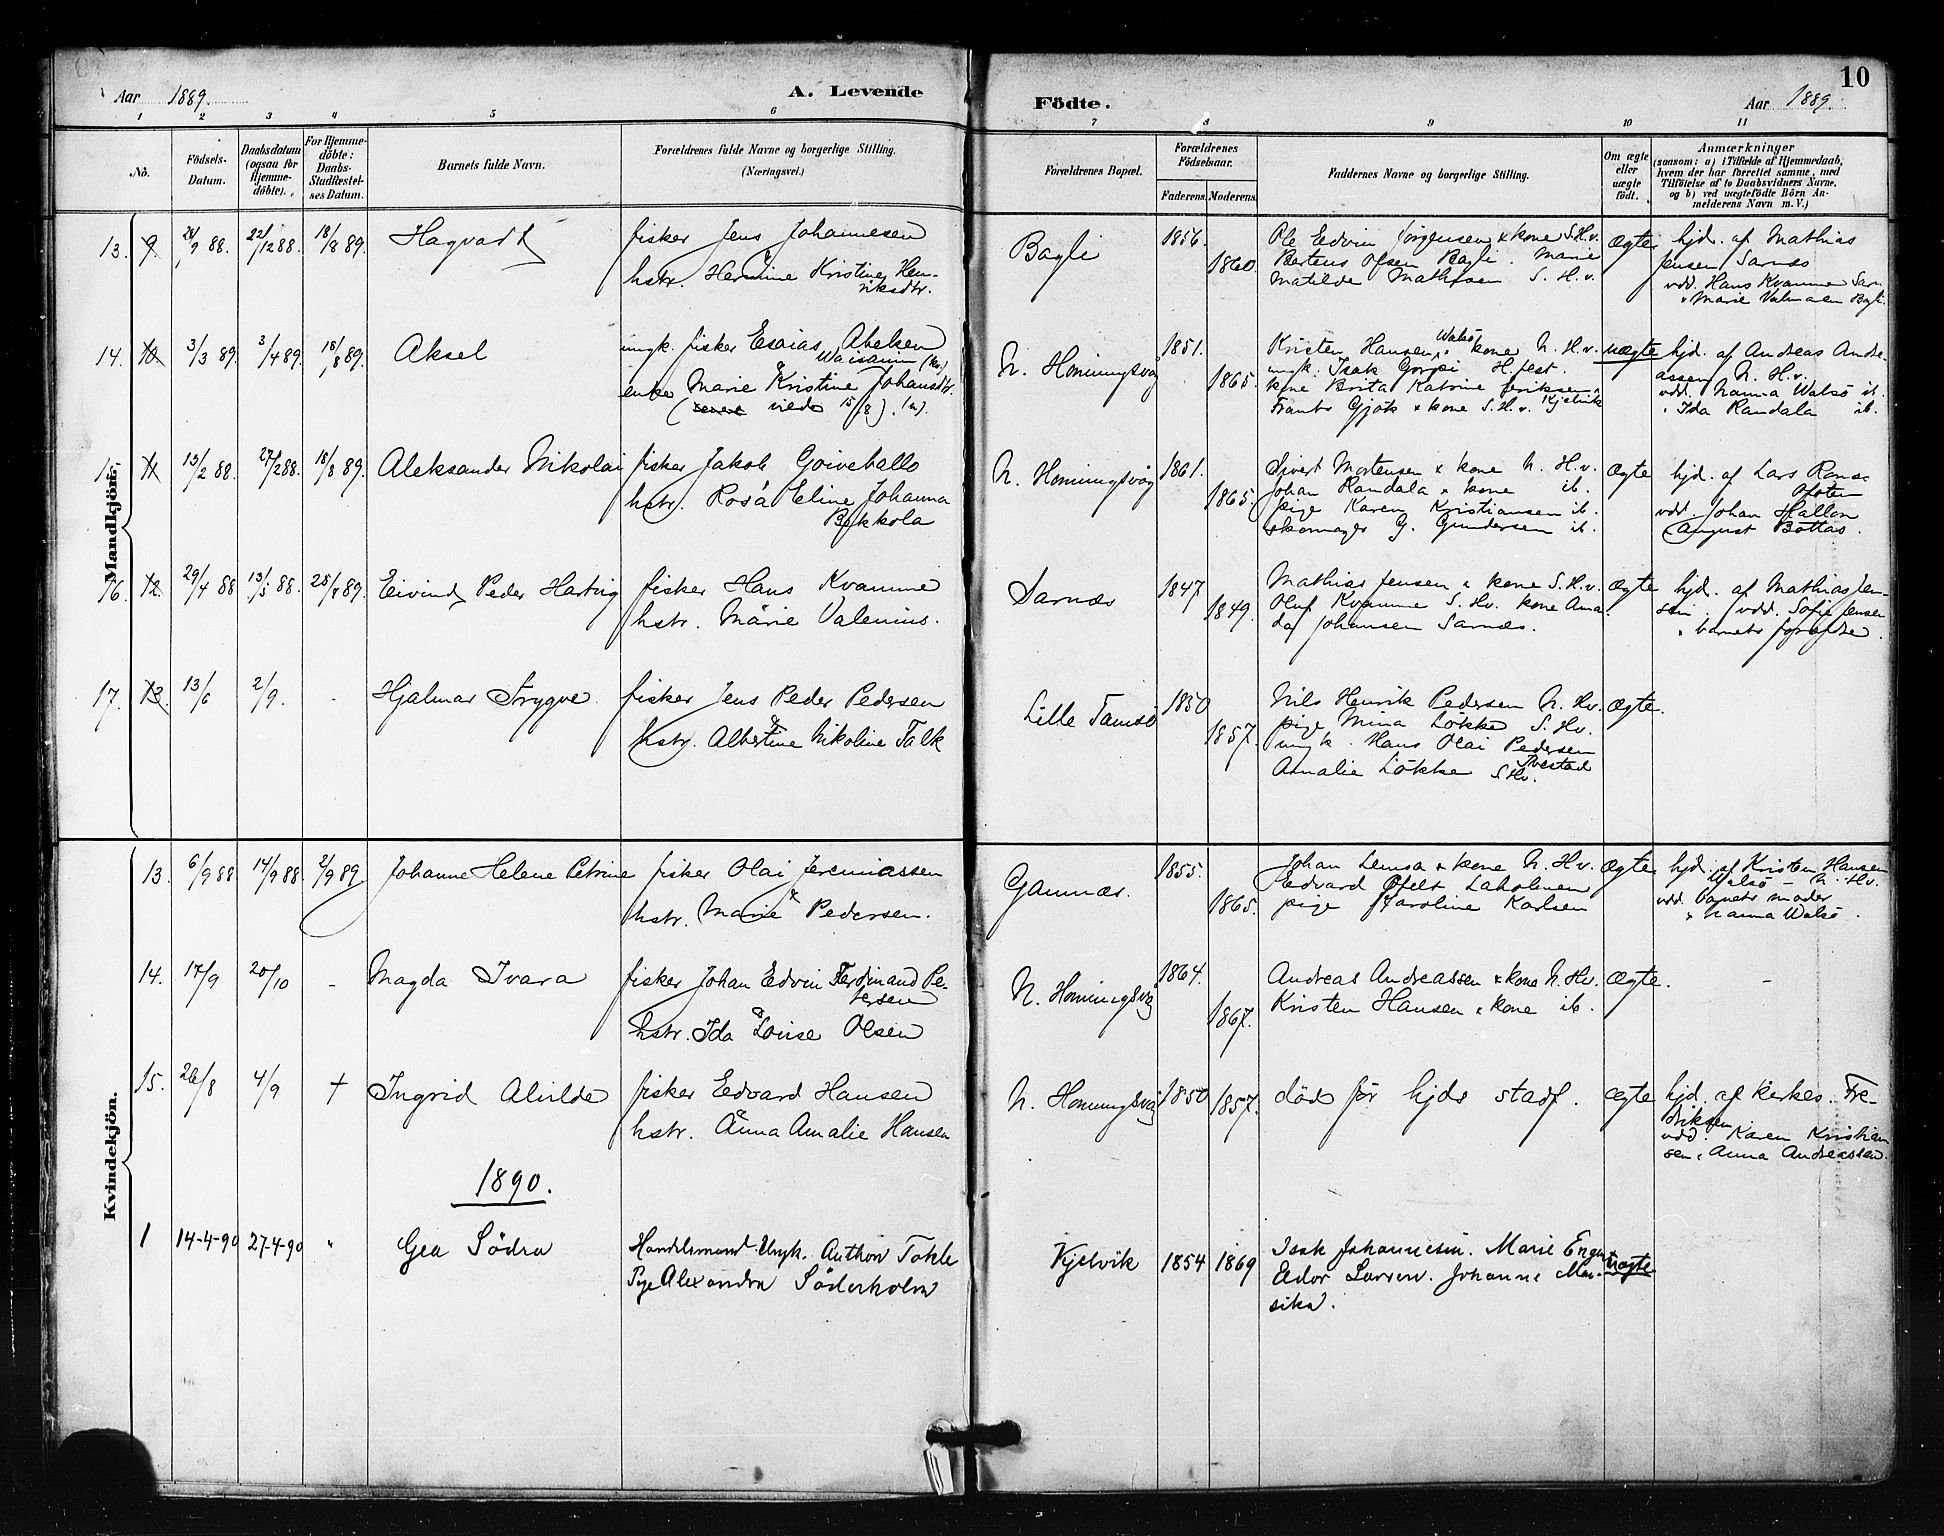 10
Aar 1889.
A. Levende
Födte.
Aar 1889.
1 2 3 4 5 6 7 8 9 10 11
No.
Födsels-
Datum.
Daabsdatum
(ogsaa for
Hjemme-
döbte).
For Hjemme-
döbte:
Daabs-
Stadfæstel-
ses Datum.
Barnets fulde Navn.
Forældrenes fulde Navne og borgerlige Stilling.
(Næringsvei.)
Forældrenes Bopæl.
Forældrenes
Födselsaar.
Faderens. Moderens.
Faddernes Navne og borgerlige Stilling.
Om ægte
eller
uægte
födt.
Anmærkninger
(saasom: a) i Tilfælde af Hjemmedaab,
hvem der har forrettet samme, med
Tilföielse af to Daabsvidners Navne,
og b) ved uægtefödte Börn An-
melderens Navn m. V.)
Mandkjön.
13. 9 22/12 88. 18/8 89. Hagvart
fisker Jens Johannesen
&
hstr. Hermine Kristine Hen-
riksdtr.
Bagli
1856.
1860.
Ole Edvin Jörgensen & kone S.H.v.
Bertens Olsen Bagli. Marie
Matilde Mathisen S. H. v.
ægte
hjd. af Mathias
Jensen Sarnæs
vdd. Hans Kvamme Sarn
& Marie Valmaen Bagli
14. 10 3/3 89. 3/4 89. 18/8 89. Aksel
ungk. fisker Esaias Abelsen
Waisanin (Kv)
&
enke Marie Kristine Johansdtr.
viede 15/8). (n).
N. Honningsvåg
1851.
1865.
Kristen Hansen Walsö & kone N. H.v.
ungk. Isak Gorpi H.fest.
kone Brita Katrine Eriksen
Frants Gjök & kone S. H. v. Kjelvik
uægte
hjd. af Andreas Andre-
assen N. H.v.
vdd. Nanna Walsö ib.
& Ida Randala ib.
11 13/2 88. 27/2 88. 18/8 89. Aleksander Nikolai
fisker Jakob Goiveballo
hstr. Rosa Eline Johanna
Bykkola
N. Honningsvåg
1861.
1865.
Sivert Mortensen & kone N. H. v.
Johan Randala & kone ib.
pige Karen Kristiansen ib.
skomager G. Gundersen ib.
ægte
hjd. af Lars Rones
Ofoten
vdd. Johan Hallon
August Bottas.
16. 12 29/4 88 13/5 88. 25/8 89. Eivind Peder Hartvig
fisker Hans Kvamme
&
hstr. Marie Valenius.
Sarnæs
1847
1849.
Mathias Jensen & kone S. H.v.
Oluf Kvamme S. Hv. kone Ama
da Johansen Sarnæs.
ægte
hjd. af Mathias Jen-
sen. vdd. Sofie Jensen
& barnets forældre.
17. 13. 13/6 2/9. - Hjalmar Trygve
fisker Jens Peder Pedersen
&
hstr. Albertine Nikoline Falk
Lille Tamsö
1850
1857.
Nils Henrik Pedersen N. Hv.
pige Mina Lökke S. Hv.
ungk. Hans Olai Pedersen
Amalie Lökke S Hv.
ægte.
Kvindekjön.
13. 6/9 88 14/9 88. 2/9 89. Johanne Helene Petrine
fisker Olai Jeremiassen
&
hstr. Marie Pedersen.
Gannæs.
1855.
1865.
Johan Lemsa & kone N. H.v.
Edvard Ofelt Laholmen
pige Karoline Karlsen
ægte
hjd. af Kristen Hansen
Walsö - N. Hv.
vdd. barnets moder
& Nanna Walsö.
14. 17/9 20/10 - Magda Ivara
fisker Johan Edvin Ferdinand Pe-
tersen
&
hstr. Ida Louise Olsen
N. Honningsvåg
1864.
1867.
Andreas Andreassen & kone N. Hv.
Kristen Hansen & kone ib.
ægte.
-
15. 26/8 4/9 † Ingrid Alvilde
fisker Edvard Hansen
&
hstr. Anna Amalie Hansen
N. Honningsvåg
1850
1857.
död för hjds stadf.
ægte
hjd. af kirkes. Fre-
driksen
vdd. Karen Kristian
sen & Anna Andreassen.
1890.
1 14-4-90 27-4-90 " Gea Södra
Handelsmand Ungk. Anthon Tokle
Pige Alexandra Söderholm
Kjelvik
1854 1869
Isak Johannesen. Marie Engen
Edor Larsen. Johanne Mar-
sika.
uægte